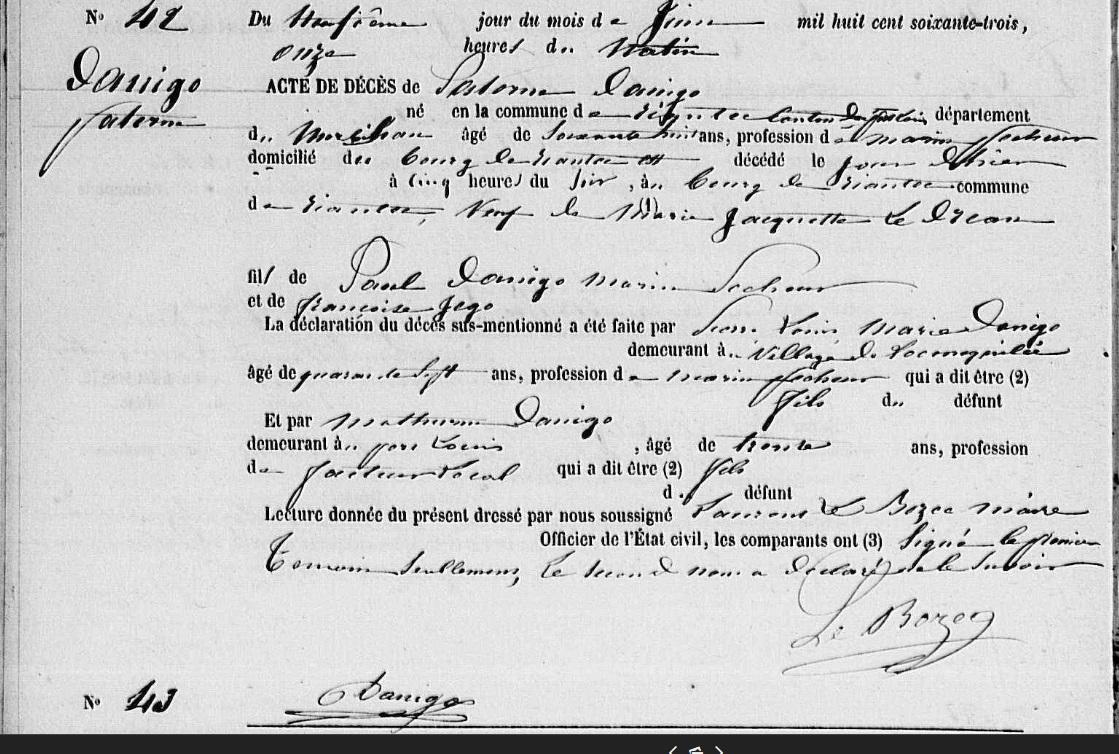 N° 42 Du Neufième jour du mois de Juin mil huit cent soixante-trois,
onze heures du Matin
Danigo
Paterne
ACTE DE DÉCÈS de Paterne Danigo
né en la commune de Riantec Canton du département
du Morbihan âgé de Soixante huit ans, profession de marin pecheur
domicilié du bourg de Riantec décédé le jour d'hier
à cinq heures du soir, au bourg de Riantec commune
de Riantec, Veuf de Marie Jacquette Le Dréan
fils de Paul Danigo marin Pecheur
et de françoise Jego
La déclaration du décès sus-mentionné a été faite par Louis Marie Danigo
demeurant à Village de Locmiquélic
âgé de quarante Sept ans, profession de marin pecheur qui a dit être (2)
fils du défunt
Et par Mathurin Danigo
demeurant à port Louis, âgé de trente ans, profession
de facteur Local qui a dit être (2) fils
du défunt
Lecture donnée du présent dressé par nous soussigné Laurent Le Bozec maire
Officier de l'État civil, les comparants ont (3) Signé le premier
Temoin Seullement, Le Second nous a déclaré ne le Savoir
Le Bozec
N° 43 Danigo